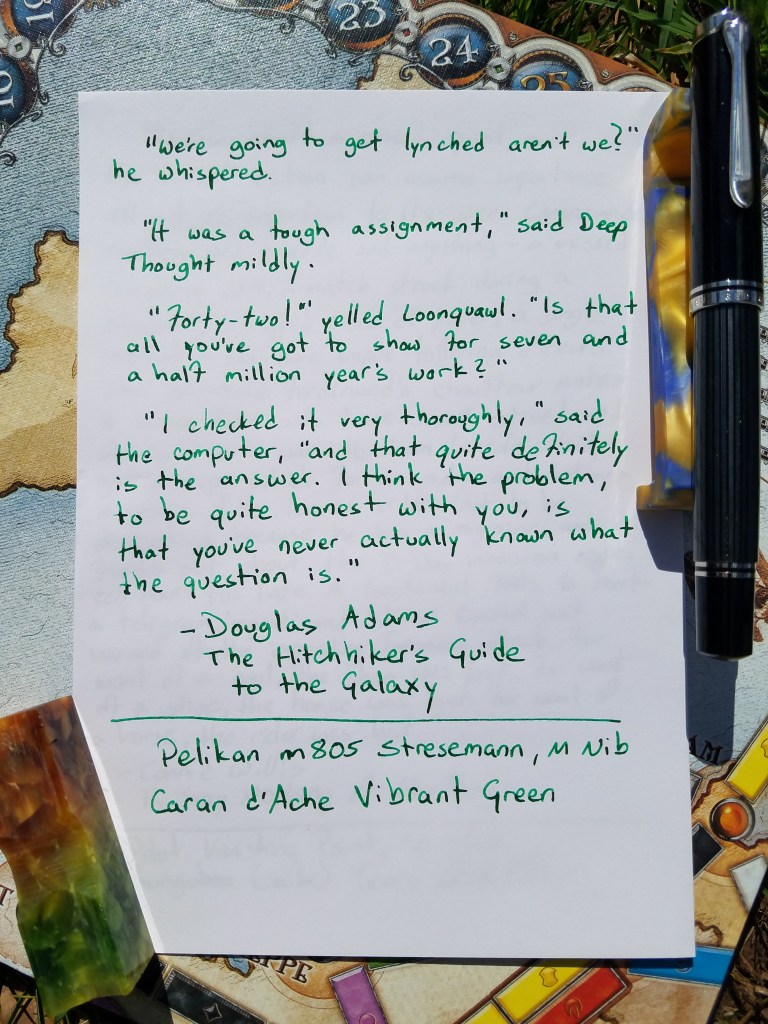 19
10
23
24
25
"we're going to get lynched aren't we?"
he whispered.
"It was a tough assignment," said Deep
Thought mildly.
"Forty-two!"' yelled Loonquawl. "Is that
all you've got to show for seven and
a half million year's work?"
"I checked it very thoroughly," said
the computer, "and that quite definitely
is the answer. I think the problem,
to be quite honest with you, is
that you've never actually known what
the question is."
- Douglas Adams
The Hitchhiker's Guide
to the Galaxy
Pelikan m805 Stresemann, M Nib
Caran d'Ache Vibrant Green